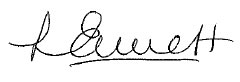 L Emmett